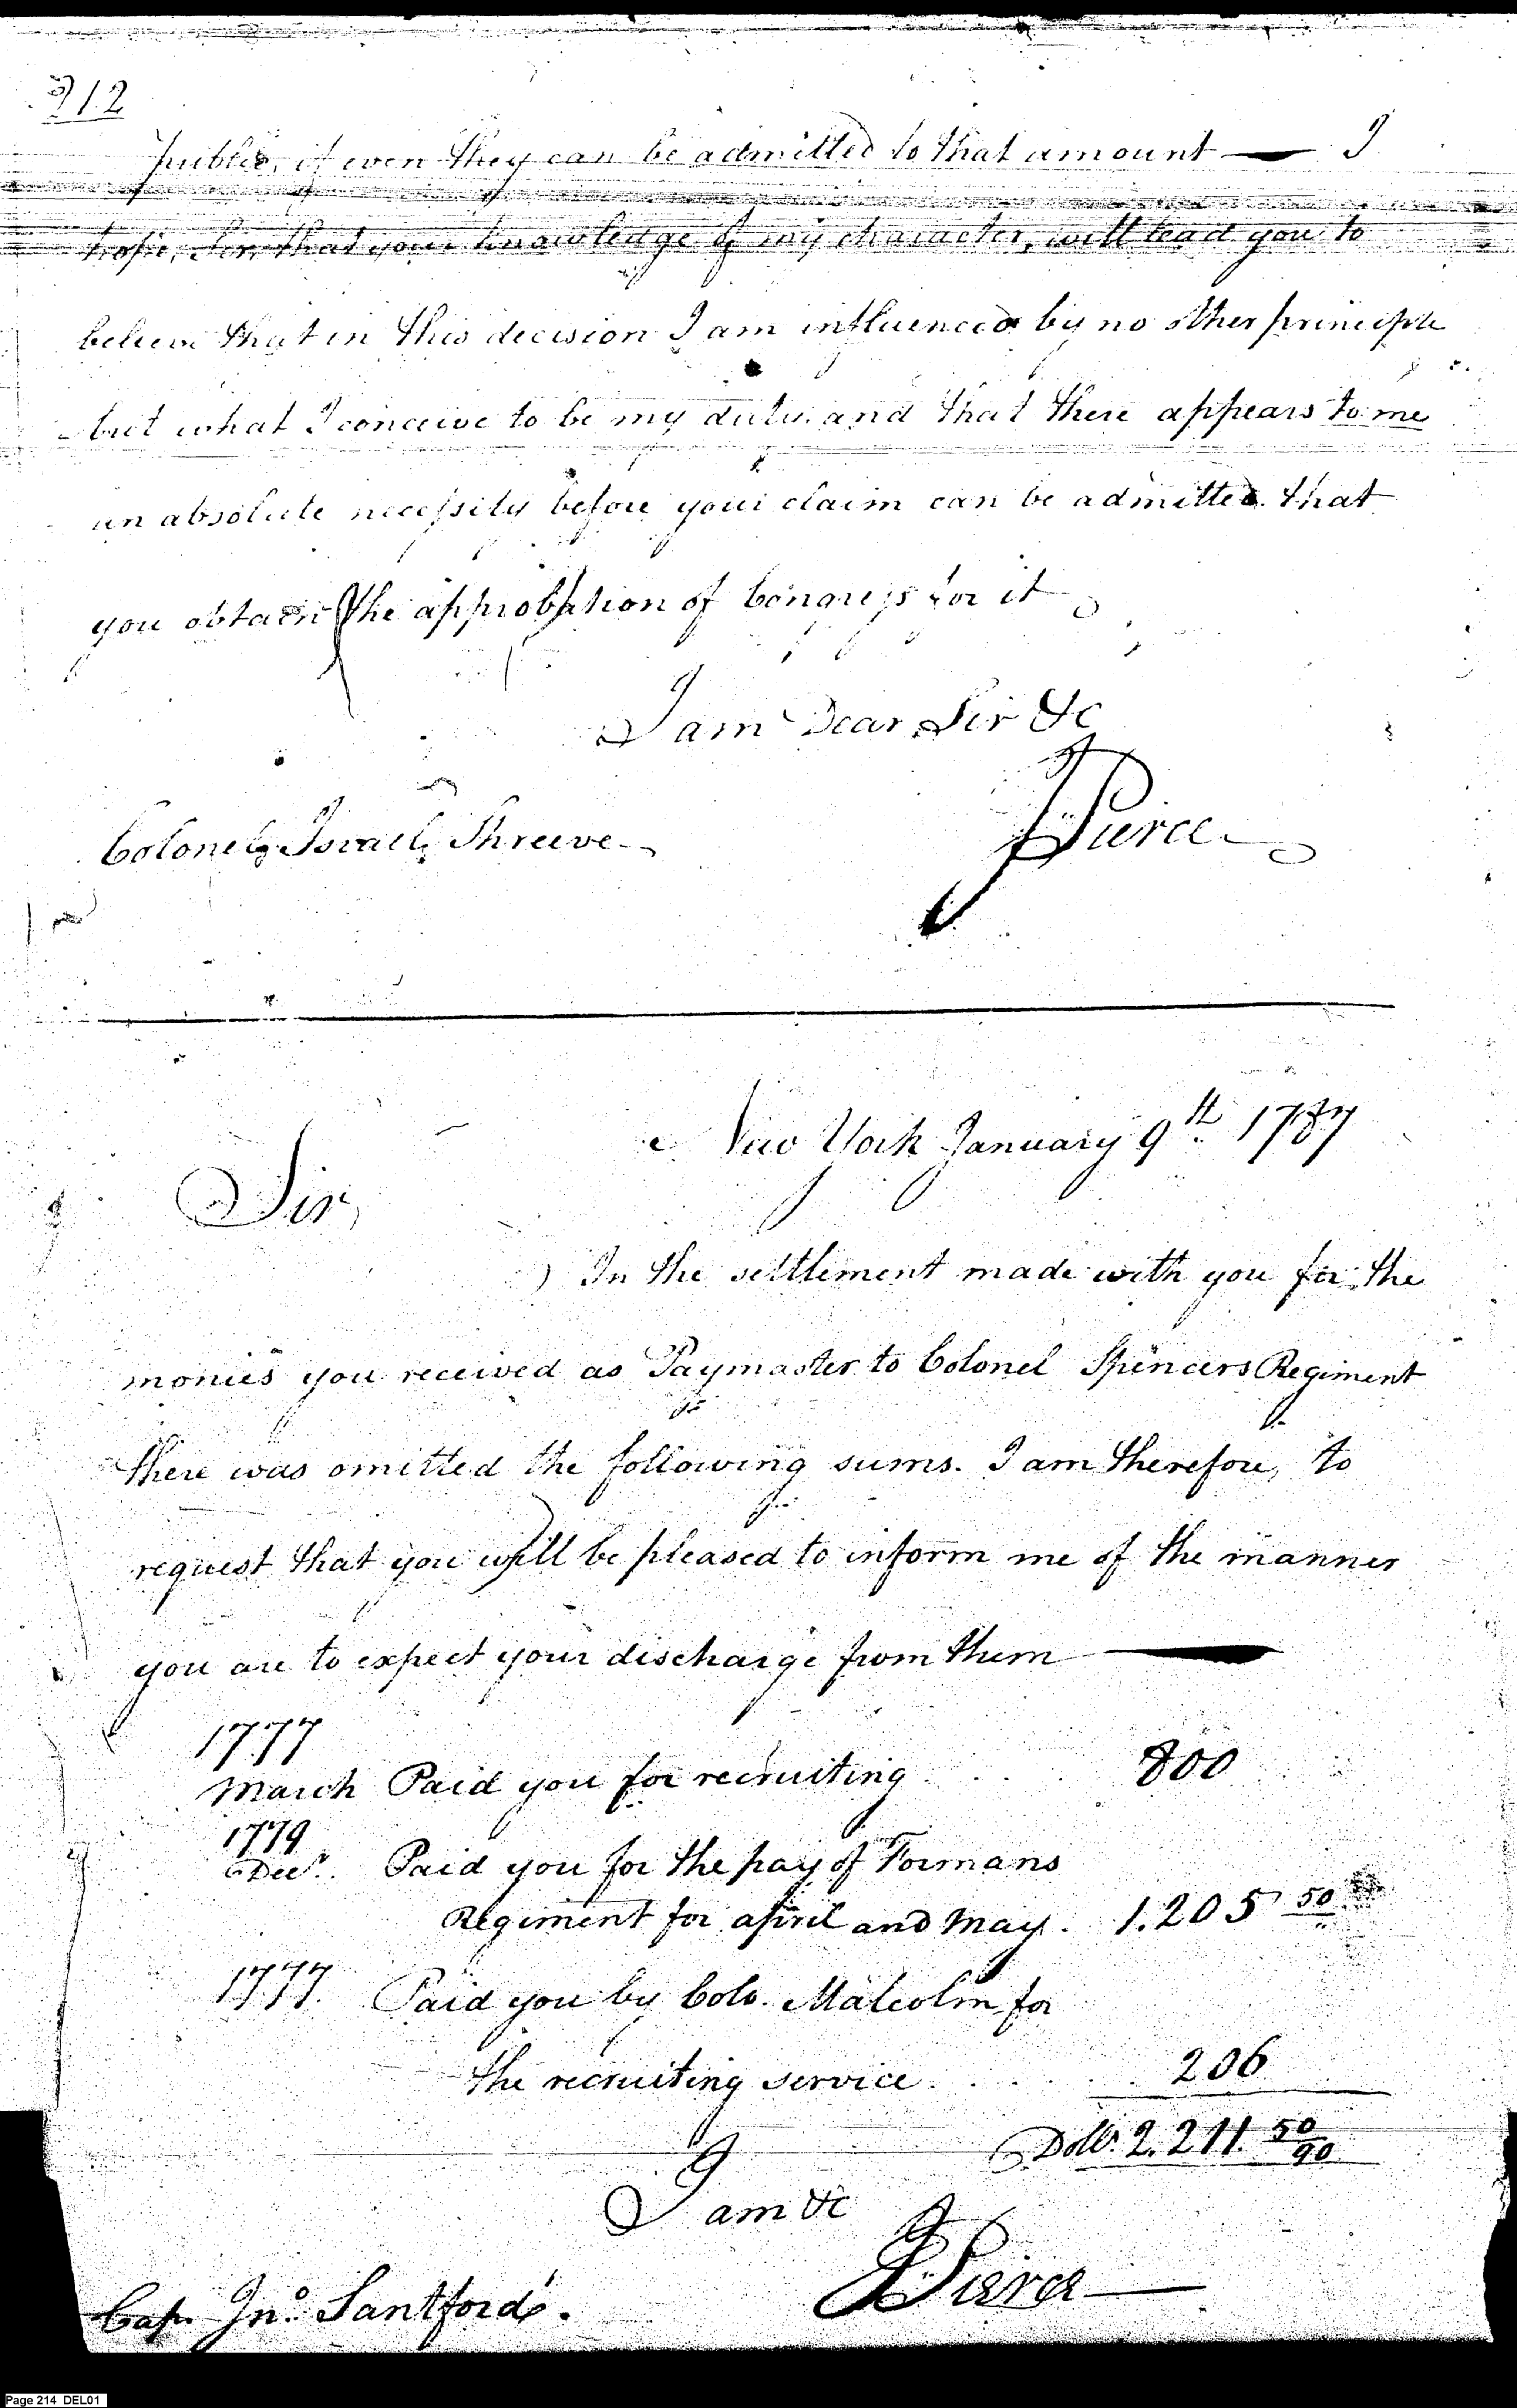 212
public, if even they can be admitted to that amount — I
hope, Sir, that your knowledge of my character, will lead you to
believe that in this decision I am influenced by no other principle
but what I conceive to be my duty. and that there appears to me
an absolute necessity before your claim can be admitted that
you obtain the approbation of Congress for it
I am Dear Sir &c
Colonel Israel Shreeve
J Pierce
New York January 9th 1787
Sir,
In the settlement made with you for the
monies you received as Paymaster to Colonel Spencers Regiment
there was omitted the following sums. I am therefore, to
request that you will be pleased to inform me of the manner
you are to expect your discharge from them —
1777
March Paid you for recruiting . . . 800
1779
Decr. Paid you for the pay of Formans
Regiment for april and May. 1.205 50
1777. Paid you by Colo. Malcolm for
the recruiting service. . . . . 206
Dolls. 2.211. 50/90
I am &c
J Pierce
Cap. Jno. Santford.
Page 214 DEL01